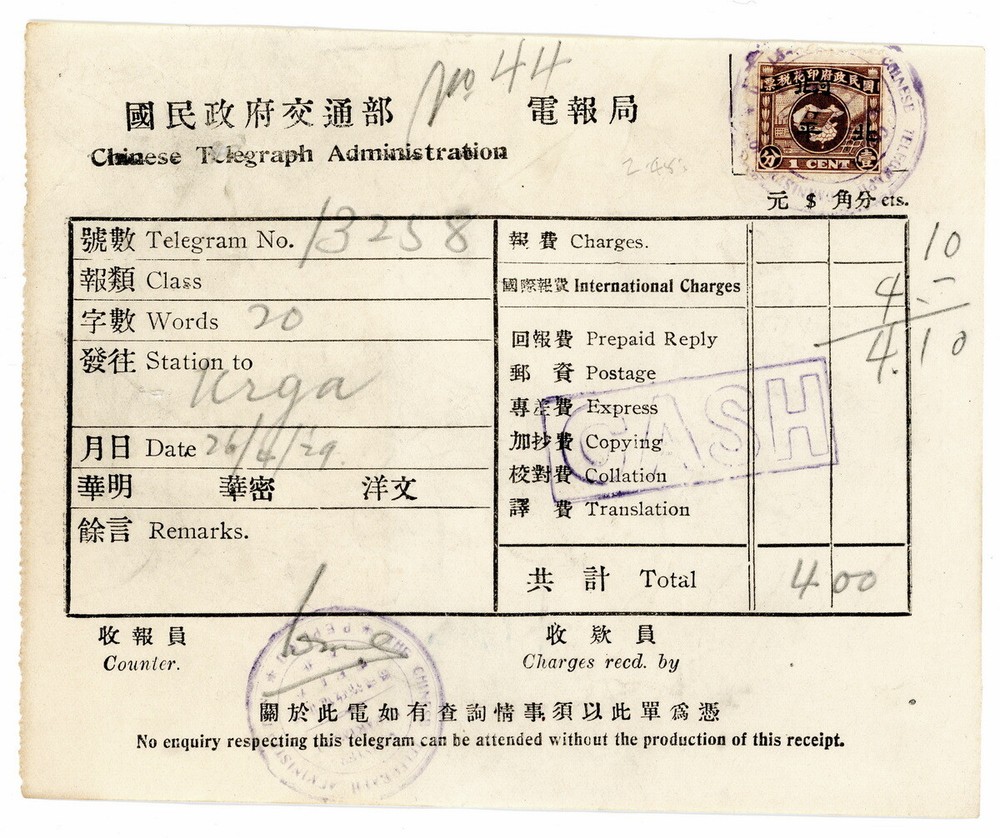 No 44
國民政府交通部 電報局
Chinese Telegraph Administration
國民政府印花稅票
分 1 CENT 壹
2.45
元 $ 角分 cts.
號數 Telegram No. 13258
報類 Class
字數 Words 20
發往 Station to
Urga
月日 Date 26/4/29.
華明 華密 洋文
餘言 Remarks.
報費 Charges. 10
國際報費 International Charges 4.-
回報費 Prepaid Reply 4.10
郵資 Postage
專差費 Express
加抄費 Copying
校對費 Collation
譯費 Translation
CASH
共計 Total 4 00
收報員
Counter.
收欵員
Charges recd. by
關於此電如有查詢情事須以此單爲憑
No enquiry respecting this telegram can be attended without the production of this receipt.